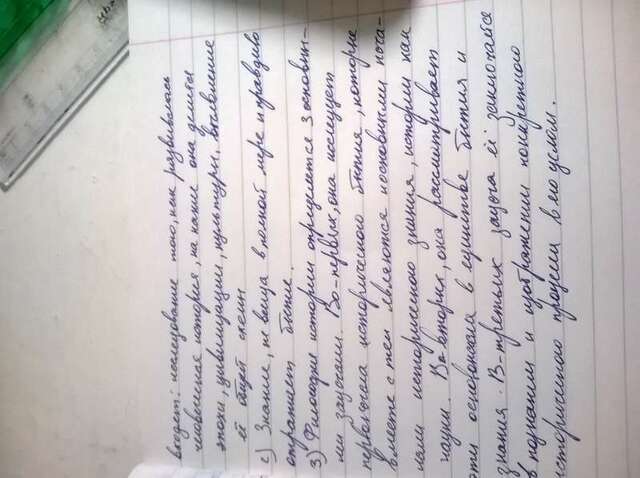 входит: исследование того, как развивалась
человеческая история, на какие она делится
эпохи, цивилизации, культуры. Выявление
её бщей схемы
2) Знание, не всегда в полной мере и правдиво
отражает бытие.
3) Философия истории определяется 3 основны-
ми задачами. Во-первых, она исследует
первоначала исторического бытия, которые
вместе с тем являются и основными нача-
лами исторического знания, истории как
науки. Во-вторых, она рассматривает
эти основоначала в единстве бытия и
знания. В-третьих задача её заключайся
в познании и изображении конкретного
исторического процесса в его